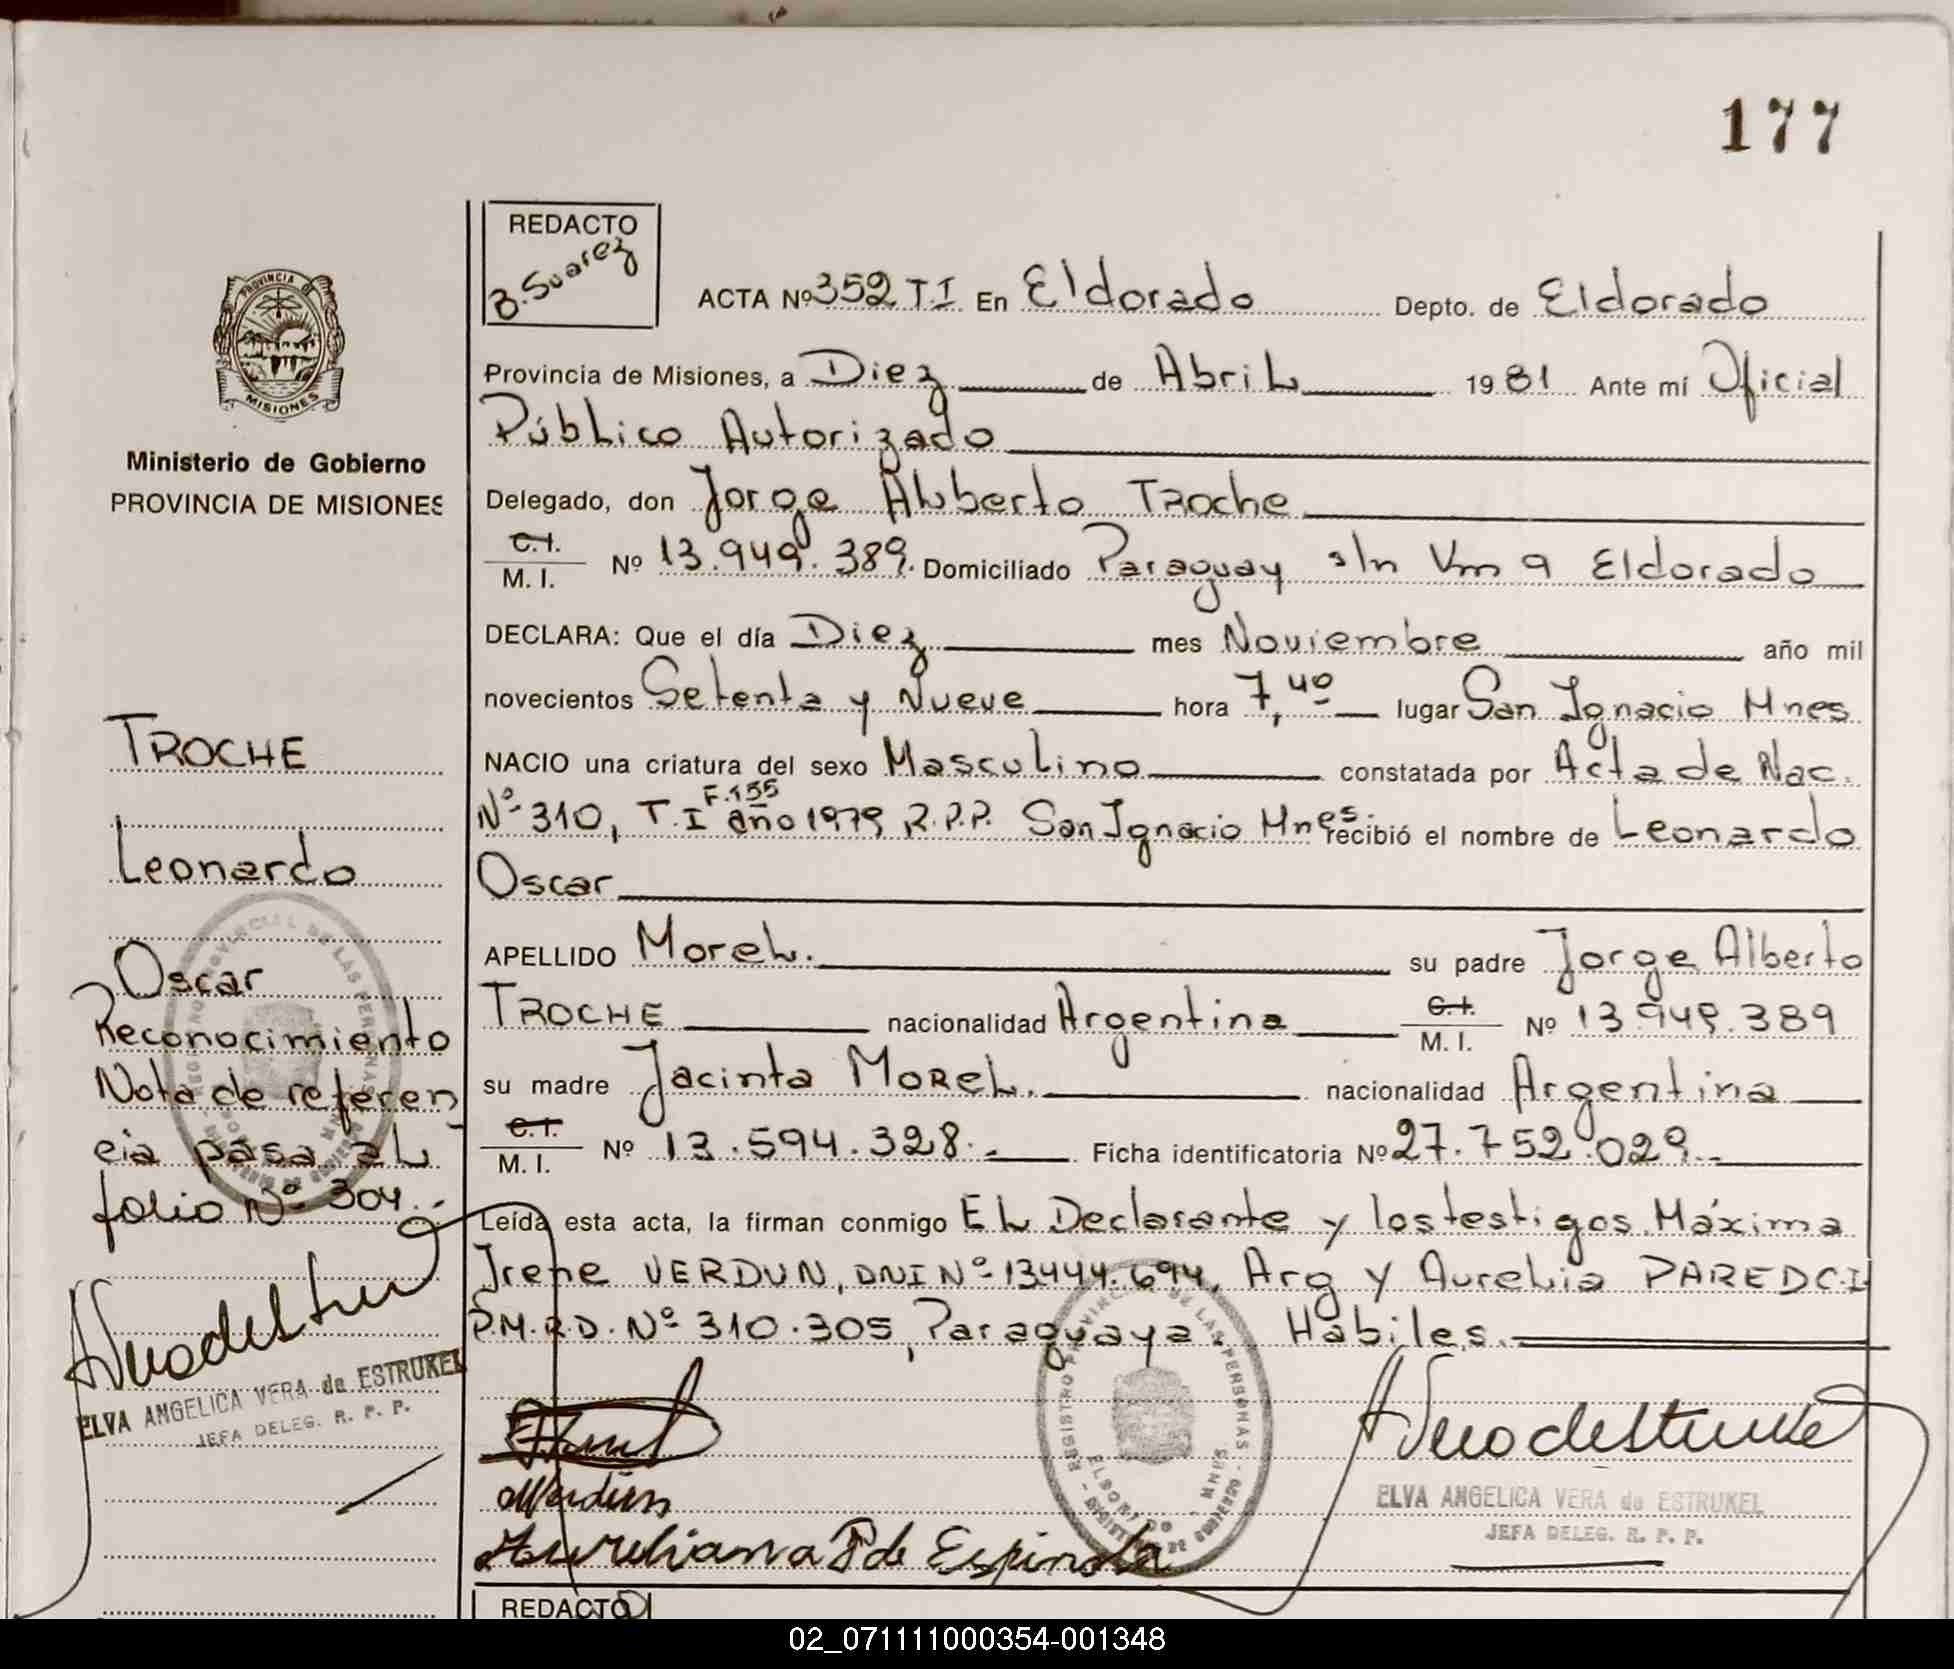 177
REDACTO
B. Suarez
PROVINCIA DE
MISIONES
Ministerio de Gobierno
PROVINCIA DE MISIONES
ACTA Nº 352 T.I En Eldorado Depto. de Eldorado
Provincia de Misiones, a Diez de Abril 1981 Ante mí Oficial
Público Autorizado
Delegado, don Jorge Alberto TROCHE
C.I. / M. I. Nº 13.949.389. Domiciliado Paraguay s/n Km 9 Eldorado
DECLARA: Que el día Diez mes Noviembre año mil
novecientos Setenta y Nueve hora 7,40 lugar San Ignacio Mnes
NACIO una criatura del sexo Masculino constatada por Acta de Nac.
F.155
Nº 310, T.I año 1979 R.P.P. San Ignacio Mnes. recibió el nombre de Leonardo
Oscar
APELLIDO Morel. su padre Jorge Alberto
TROCHE nacionalidad Argentina C.I. / M. I. Nº 13.949.389
su madre Jacinta MOREL. nacionalidad Argentina
C.I. / M. I. Nº 13.594.328. Ficha identificatoria Nº 27.752.029.
Leída esta acta, la firman conmigo El Declarante y los testigos Máxima
Irene VERDUN, DNI Nº 13444.694, Arg y Aurelia PAREDC.I
P.M.R.D. Nº 310.305, Paraguaya. Hábiles.
TROCHE
Leonardo
Oscar
Reconocimiento
Nota de referen
cia pasa al
folio Nº 304.
ELVA ANGELICA VERA de ESTRUKEL
JEFA DELEG. R. P. P.
MVerdún
Aureliana P de Espinola
REGISTRO PROVINCIAL DE LAS PERSONAS
ELDORADO - MNES
ELVA ANGELICA VERA de ESTRUKEL
JEFA DELEG. R. P. P.
REDACTO
02_071111000354-001348